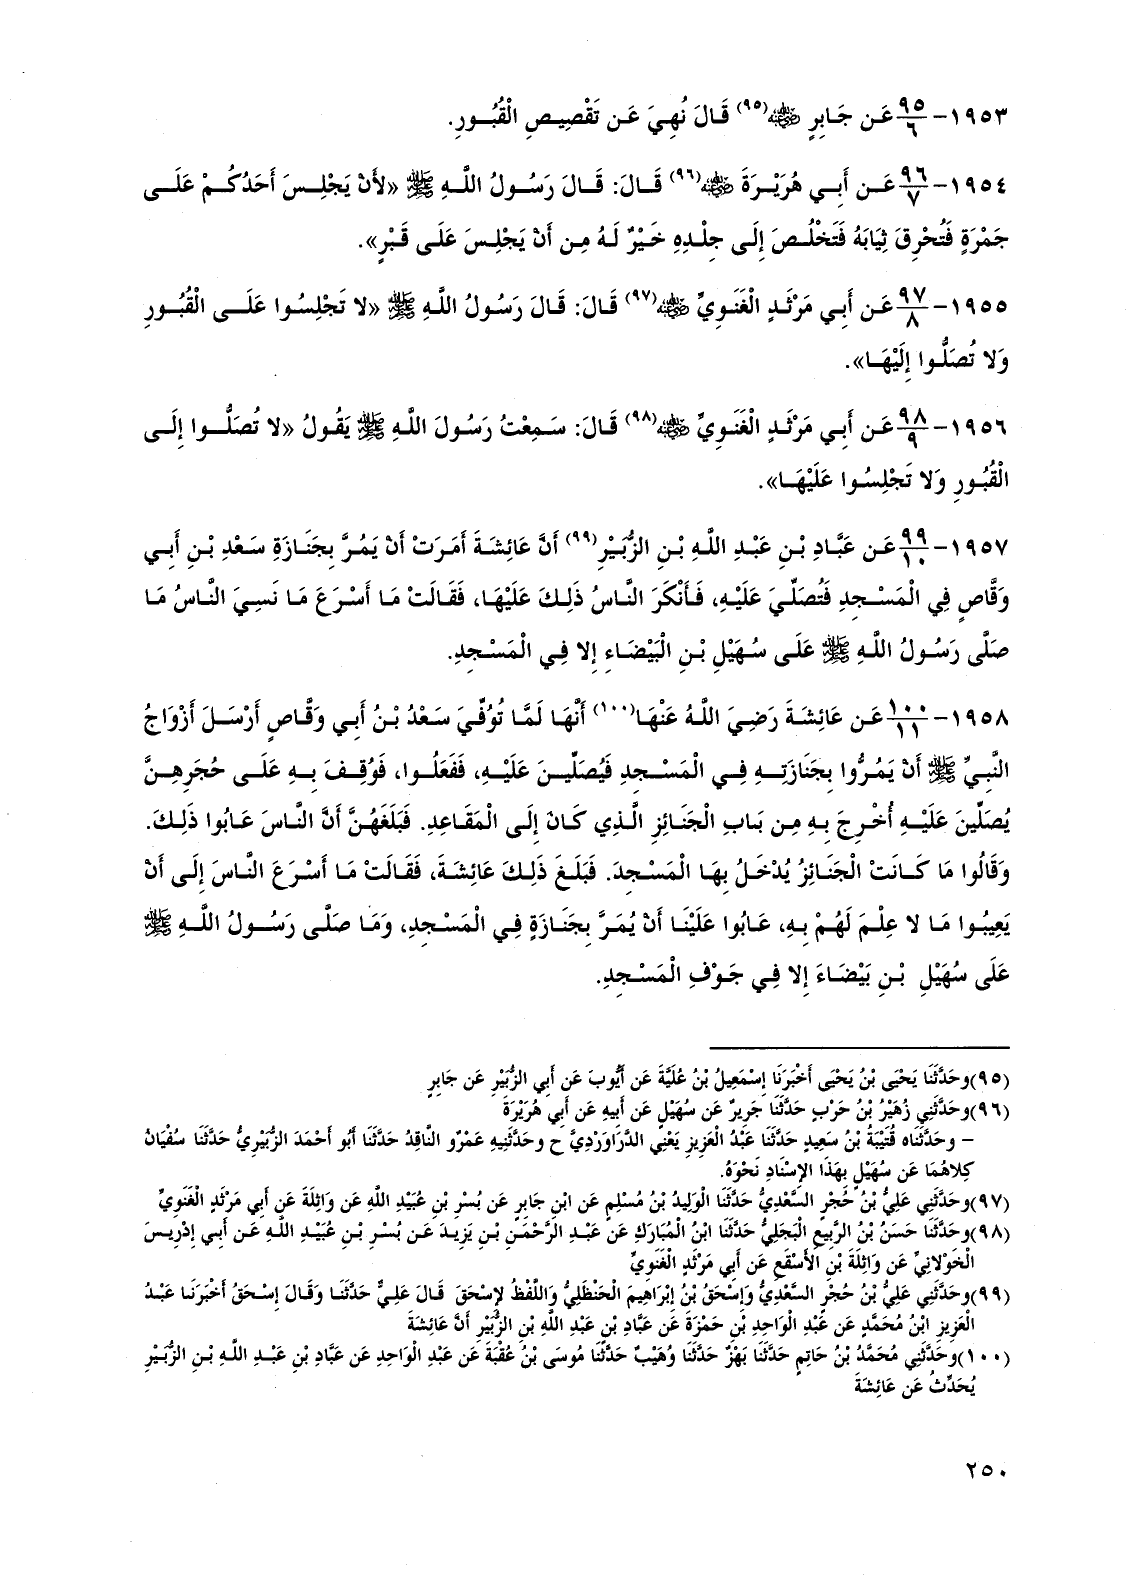 ١٩٥٣- ٩٥/٦ عَن جَابِرٍ ﷺ(٩٥) قَالَ نُهِيَ عَن تَقْصِيصِ الْقُبُورِ.
١٩٥٤- ٩٦/٧ عَن أَبِي هُرَيْرَةَ ﷺ(٩٦) قَالَ: قَالَ رَسُولُ اللَّهِ ﷺ «لأَنْ يَجْلِسَ أَحَدُكُمْ عَلَى
جَمْرَةٍ فَتُحْرِقَ ثِيَابَهُ فَتَخْلُصَ إِلَى جِلْدِهِ خَيْرٌ لَهُ مِن أَنْ يَجْلِسَ عَلَى قَبْرٍ».
١٩٥٥- ٩٧/٨ عَن أَبِي مَرْثَدٍ الْغَنَوِيِّ رضي الله عنه(٩٧) قَالَ: قَالَ رَسُولُ اللَّهِ ﷺ «لا تَجْلِسُوا عَلَى الْقُبُورِ
وَلا تُصَلُّوا إِلَيْهَا».
١٩٥٦- ٩٨/٩ عَن أَبِي مَرْثَدٍ الْغَنَوِيِّ رضي الله عنه(٩٨) قَالَ: سَمِعْتُ رَسُولَ اللَّهِ ﷺ يَقُولُ «لا تُصَلُّوا إِلَى
الْقُبُورِ وَلا تَجْلِسُوا عَلَيْهَا».
١٩٥٧- ٩٩/١٠ عَن عَبَّادِ بْنِ عَبْدِ اللَّهِ بْنِ الزُّبَيْرِ(٩٩) أَنَّ عَائِشَةَ أَمَرَتْ أَنْ يَمُرَّ بِجَنَازَةِ سَعْدِ بْنِ أَبِي
وَقَّاصٍ فِي الْمَسْجِدِ فَتُصَلِّيَ عَلَيْهِ، فَأَنْكَرَ النَّاسُ ذَلِكَ عَلَيْهَا، فَقَالَتْ مَا أَسْرَعَ مَا نَسِيَ النَّاسُ مَا
صَلَّى رَسُولُ اللَّهِ ﷺ عَلَى سُهَيْلِ بْنِ الْبَيْضَاءِ إِلا فِي الْمَسْجِدِ.
١٩٥٨- ١٠٠/١١ عَن عَائِشَةَ رَضِيَ اللَّهُ عَنْهَا(١٠٠) أَنَّهَا لَمَّا تُوُفِّيَ سَعْدُ بْنُ أَبِي وَقَّاصٍ أَرْسَلَ أَزْوَاجُ
النَّبِيِّ ﷺ أَنْ يَمُرُّوا بِجَنَازَتِهِ فِي الْمَسْجِدِ فَيُصَلِّينَ عَلَيْهِ، فَفَعَلُوا، فَوُقِفَ بِهِ عَلَى حُجَرِهِنَّ
يُصَلِّينَ عَلَيْهِ أُخْرِجَ بِهِ مِن بَابِ الْجَنَائِزِ الَّذِي كَانَ إِلَى الْمَقَاعِدِ. فَبَلَغَهُنَّ أَنَّ النَّاسَ عَابُوا ذَلِكَ.
وَقَالُوا مَا كَانَتْ الْجَنَائِزُ يُدْخَلُ بِهَا الْمَسْجِدَ. فَبَلَغَ ذَلِكَ عَائِشَةَ، فَقَالَتْ مَا أَسْرَعَ النَّاسَ إِلَى أَنْ
يَعِيبُوا مَا لا عِلْمَ لَهُمْ بِهِ، عَابُوا عَلَيْنَا أَنْ يُمَرَّ بِجَنَازَةٍ فِي الْمَسْجِدِ، وَمَا صَلَّى رَسُولُ اللَّهِ ﷺ
عَلَى سُهَيْلِ بْنِ بَيْضَاءَ إِلا فِي جَوْفِ الْمَسْجِدِ.
(٩٥)وحَدَّثَنَا يَحْيَى بْنُ يَحْيَى أَخْبَرَنَا إِسْمَعِيلُ بْنُ عُلَيَّةَ عَن أَيُّوبَ عَن أَبِي الزُّبَيْرِ عَن جَابِرٍ
(٩٦)وحَدَّثَنِي زُهَيْرُ بْنُ حَرْبٍ حَدَّثَنَا جَرِيرٌ عَن سُهَيْلٍ عَن أَبِيهِ عَن أَبِي هُرَيْرَةَ
– وحَدَّثَنَاه قُتَيْبَةُ بْنُ سَعِيدٍ حَدَّثَنَا عَبْدُ الْعَزِيزِ يَعْنِي الدَّرَاوَرْدِيَّ ح وحَدَّثَنِيهِ عَمْرٌو النَّاقِدُ حَدَّثَنَا أَبُو أَحْمَدَ الزُّبَيْرِيُّ حَدَّثَنَا سُفْيَانُ
كِلاهُمَا عَن سُهَيْلٍ بِهَذَا الإِسْنَادِ نَحْوَهُ.
(٩٧)وحَدَّثَنِي عَلِيُّ بْنُ حُجْرٍ السَّعْدِيُّ حَدَّثَنَا الْوَلِيدُ بْنُ مُسْلِمٍ عَن ابْنِ جَابِرٍ عَن بُسْرِ بْنِ عُبَيْدِ اللَّهِ عَن وَاثِلَةَ عَن أَبِي مَرْثَدٍ الْغَنَوِيِّ
(٩٨)وحَدَّثَنَا حَسَنُ بْنُ الرَّبِيعِ الْبَجَلِيُّ حَدَّثَنَا ابْنُ الْمُبَارَكِ عَن عَبْدِ الرَّحْمَنِ بْنِ يَزِيدَ عَن بُسْرِ بْنِ عُبَيْدِ اللَّهِ عَن أَبِي إِدْرِيسَ
الْخَوْلانِيِّ عَن وَاثِلَةَ بْنِ الأَسْقَعِ عَن أَبِي مَرْثَدٍ الْغَنَوِيِّ
(٩٩)وحَدَّثَنِي عَلِيُّ بْنُ حُجْرٍ السَّعْدِيُّ وَإِسْحَقُ بْنُ إِبْرَاهِيمَ الْحَنْظَلِيُّ وَاللَّفْظُ لإِسْحَقَ قَالَ عَلِيٌّ حَدَّثَنَا وَقَالَ إِسْحَقُ أَخْبَرَنَا عَبْدُ
الْعَزِيزِ ابْنُ مُحَمَّدٍ عَن عَبْدِ الْوَاحِدِ بْنِ حَمْزَةَ عَن عَبَّادِ بْنِ عَبْدِ اللَّهِ بْنِ الزُّبَيْرِ أَنَّ عَائِشَةَ
(١٠٠)وحَدَّثَنِي مُحَمَّدُ بْنُ حَاتِمٍ حَدَّثَنَا بَهْزٌ حَدَّثَنَا وُهَيْبٌ حَدَّثَنَا مُوسَى بْنُ عُقْبَةَ عَن عَبْدِ الْوَاحِدِ عَن عَبَّادِ بْنِ عَبْدِ اللَّهِ بْنِ الزُّبَيْرِ
يُحَدِّثُ عَن عَائِشَةَ
٢٥٠